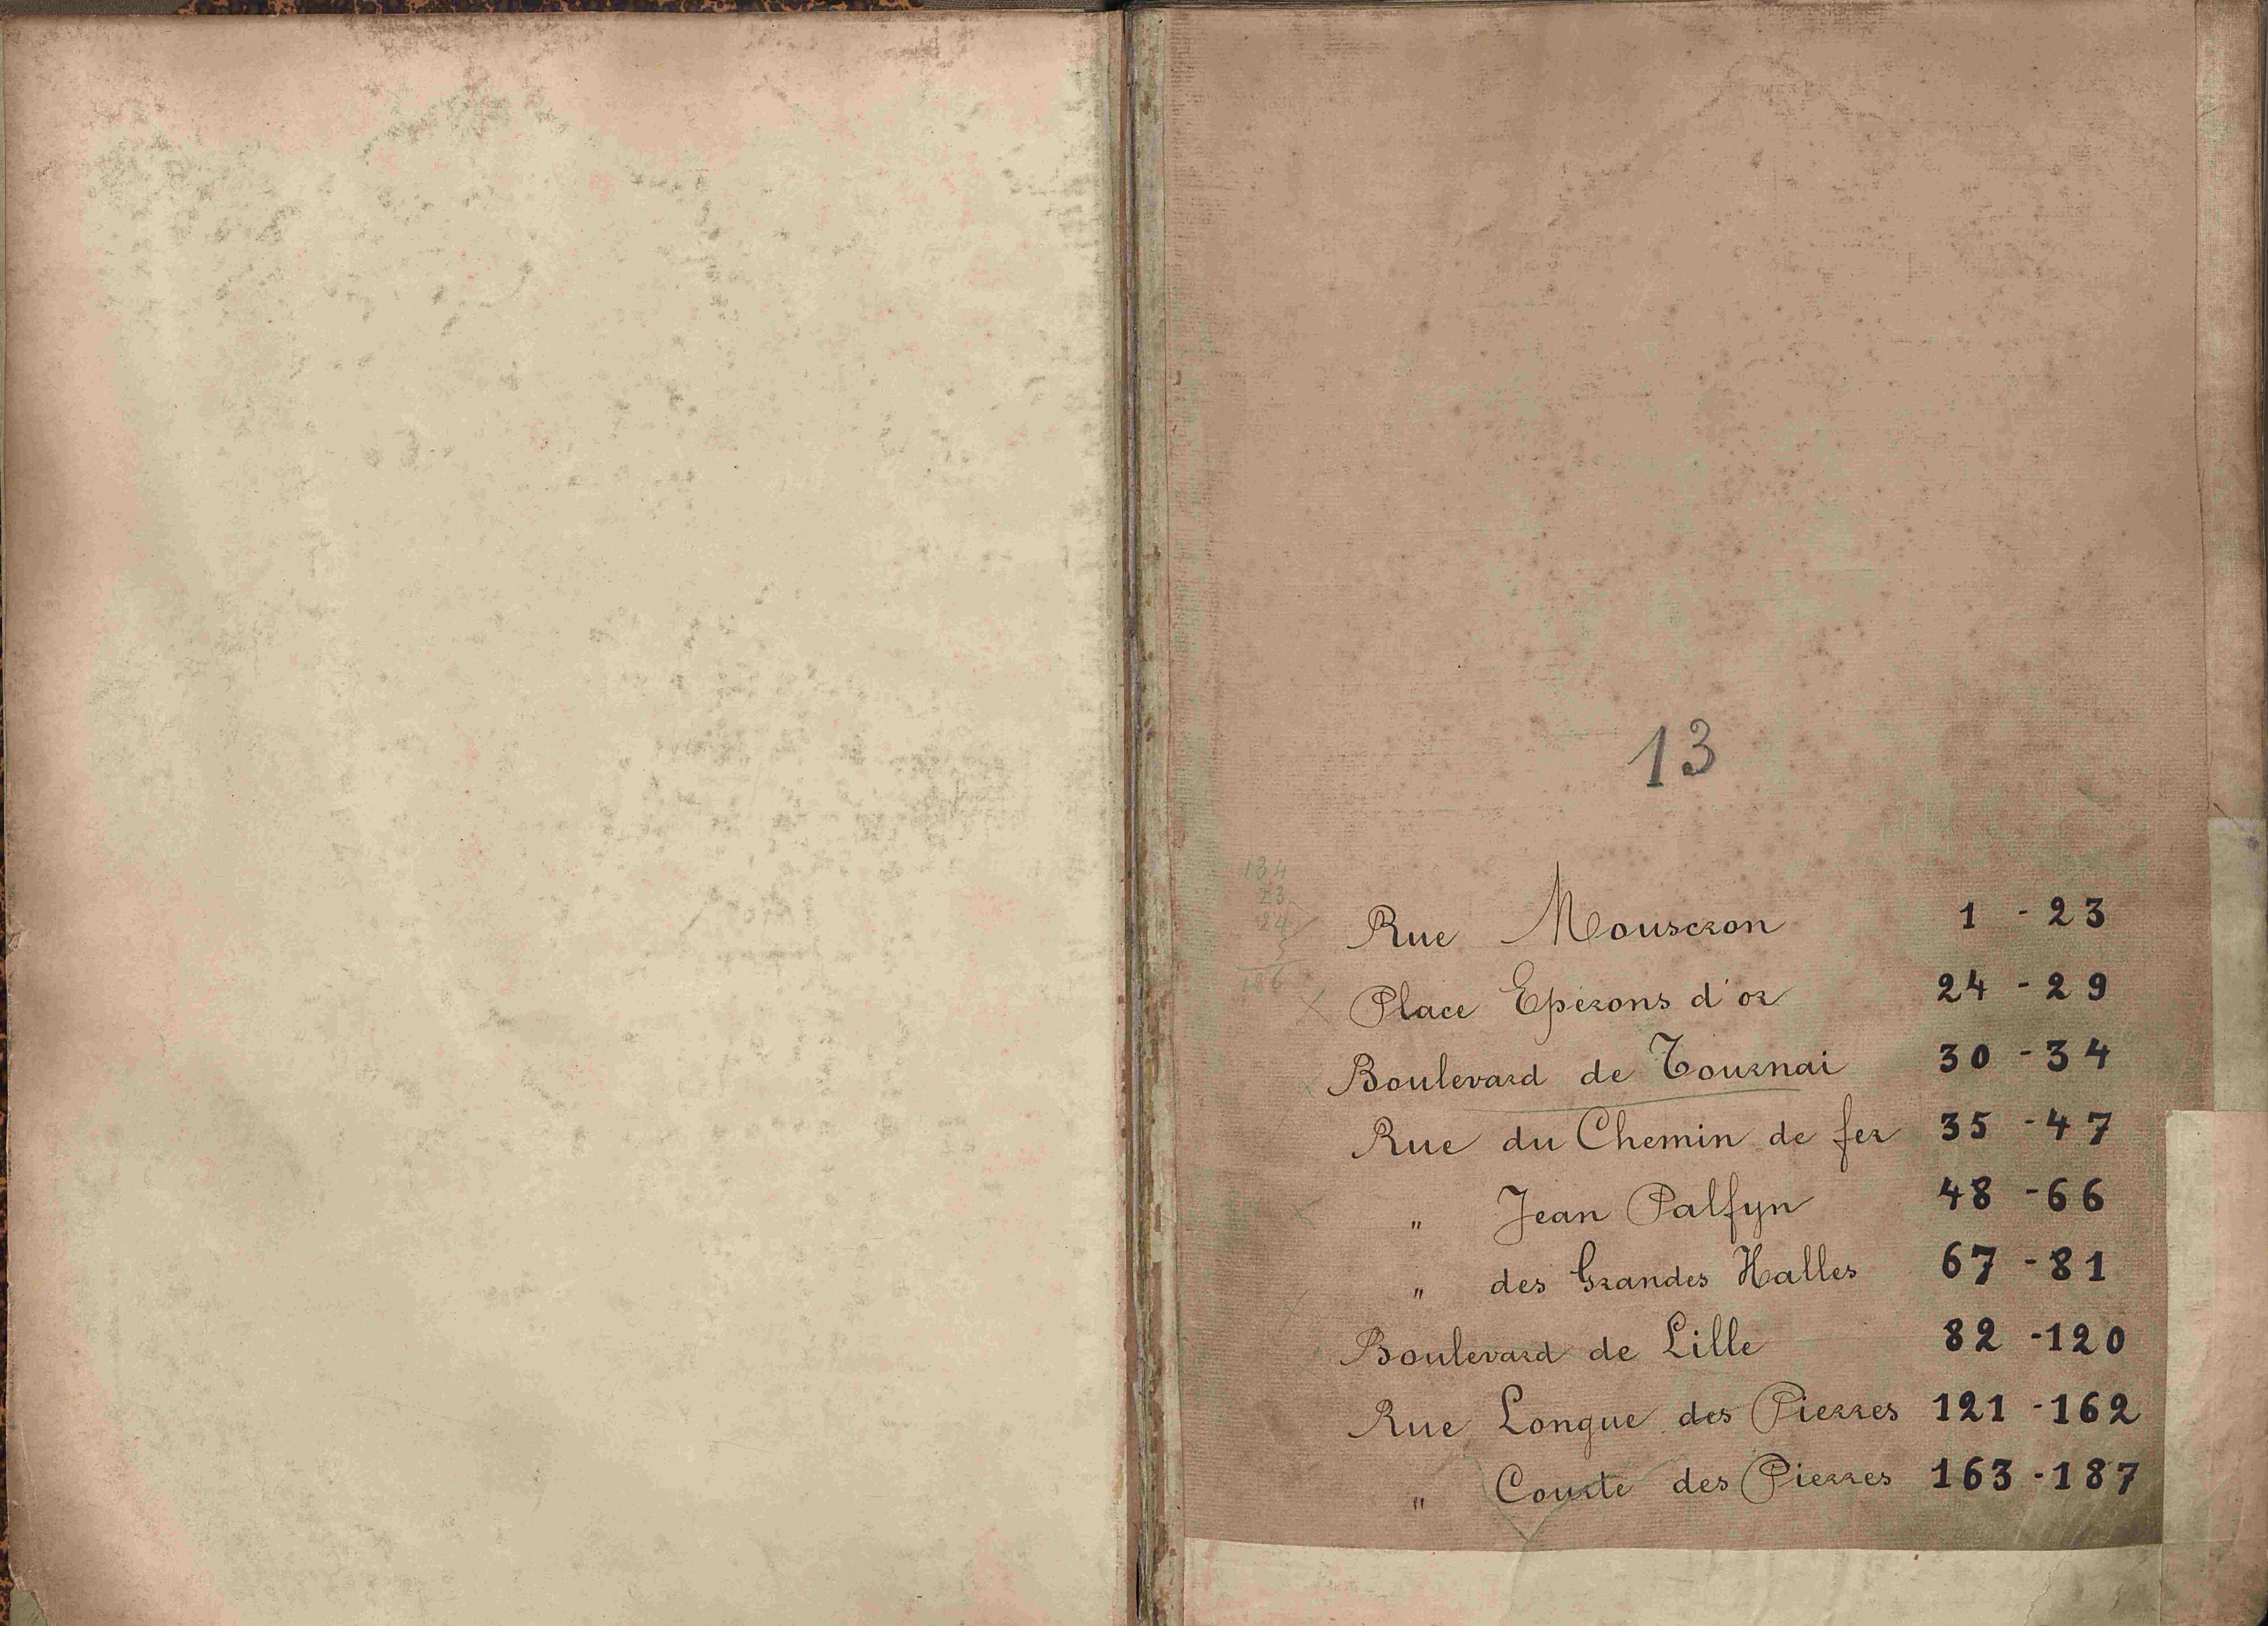 13
134
23
24
5
186
Rue Mouscron 1 - 23
Place Eperons d'or 24 - 29
Boulevard de Tournai 30 - 34
Rue du Chemin de fer 35 - 47
" Jean Palfyn 48 - 66
" des Grandes Halles 67 - 81
Boulevard de Lille 82 - 120
Rue Longue des Pierres 121 - 162
" Courte des Pierres 163 - 187